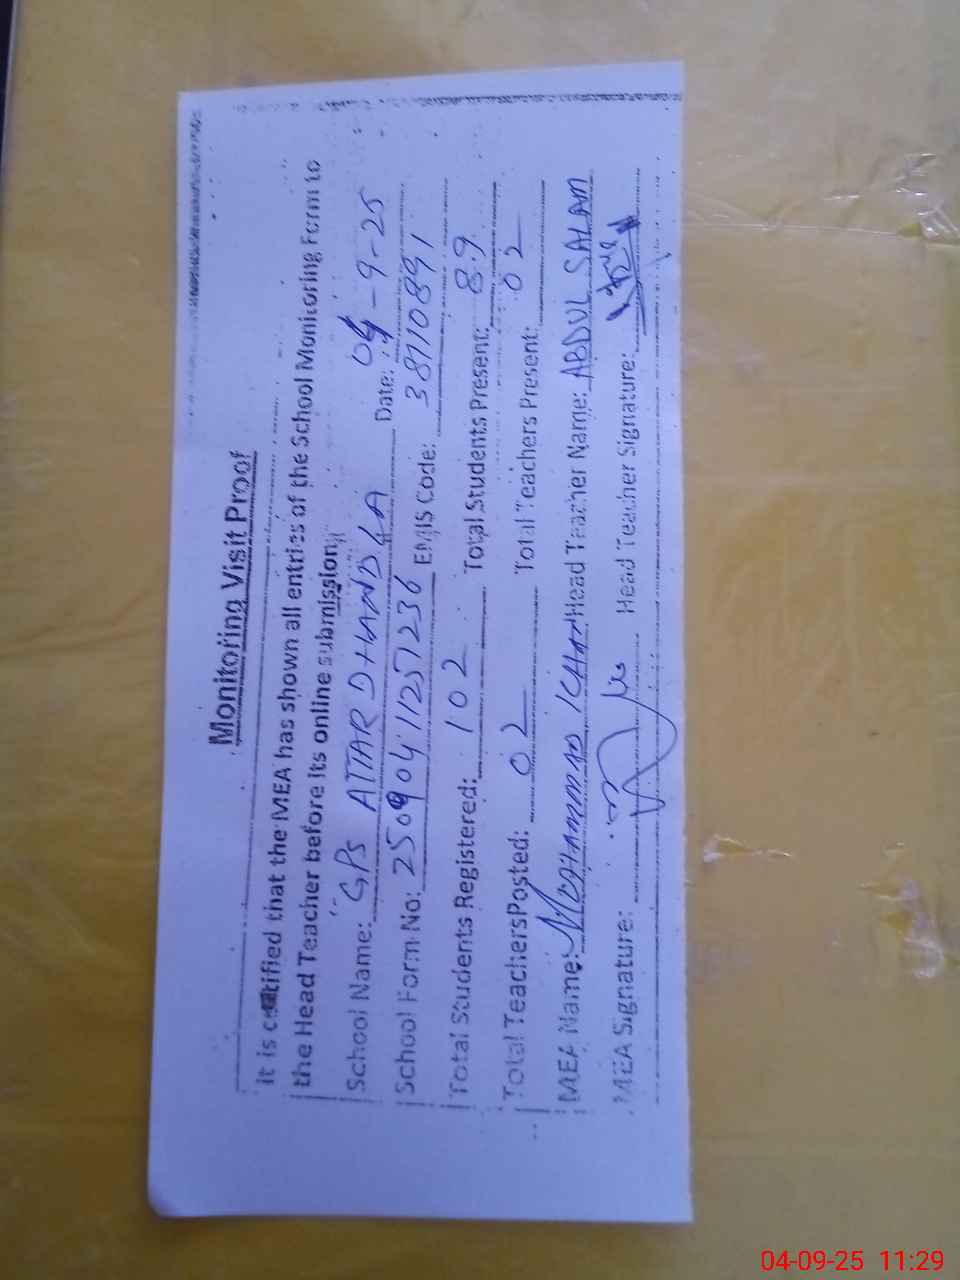 Monitoring Visit Proof
it is certified that the MEA has shown all entries of the School Monitoring Form to
the Head Teacher before its online submission.
School Name: GPS ATTAR DHANDLA Date: 04-9-25
School Form No: 250904112571236 EMIS Code: 38710891
Total Students Registered: 102 Total Students Present: 89
Total Teachers Posted: 02 Total Teachers Present: 02
MEA Name: MOHAMMAD KHAN Head Teacher Name: ABDUL SALAM
MEA Signature: Head Teacher Signature:
04-09-25 11:29